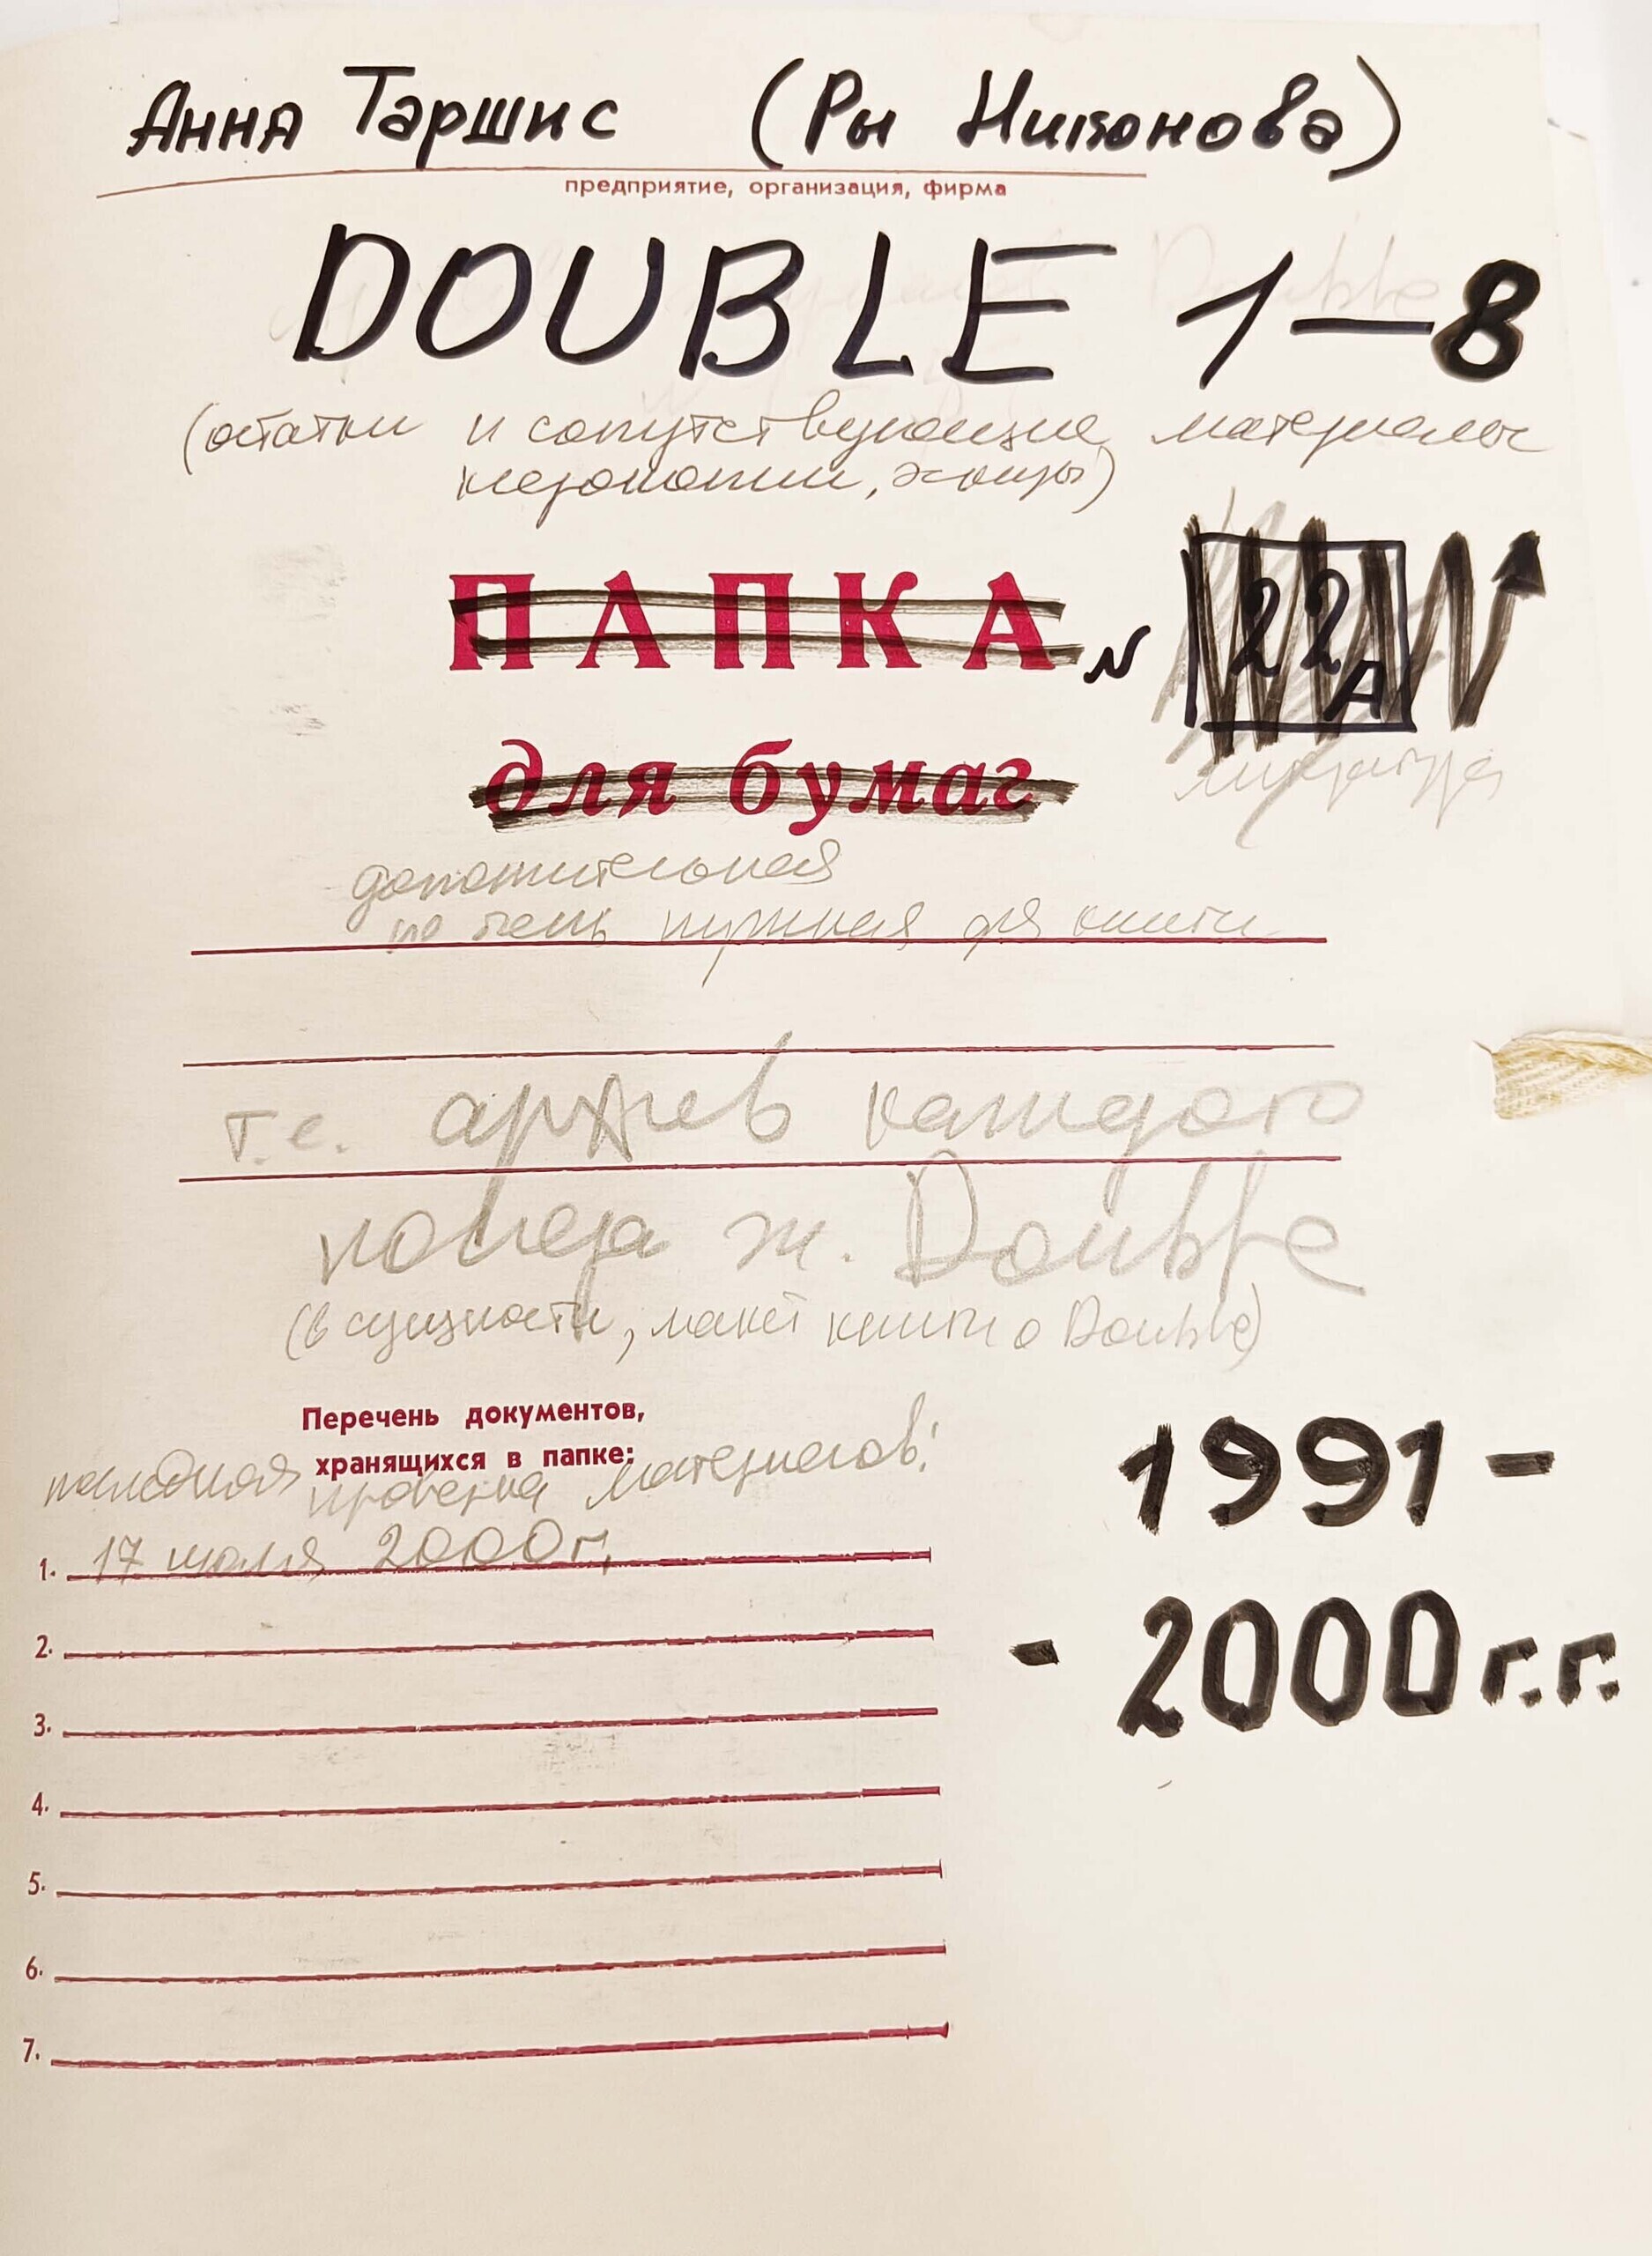 Анна Таршис (Ры Никонова)
предприятие, организация, фирма
DOUBLE 1—8
(остатки и сопутствующие материалы
ксерокопии, эскизы)
ПАПКА N 22А
для бумаг
литература
дополнительная
но очень нужная для книги
т.е. архив каждого
номера ж. Double
(в сущности, макет книги о Double)
Перечень документов,
хранящихся в папке:
последняя проверка материалов:
1. 17 июля 2000 г.
1991 –
- 2000 г.г.
2.
3.
4.
5.
6.
7.